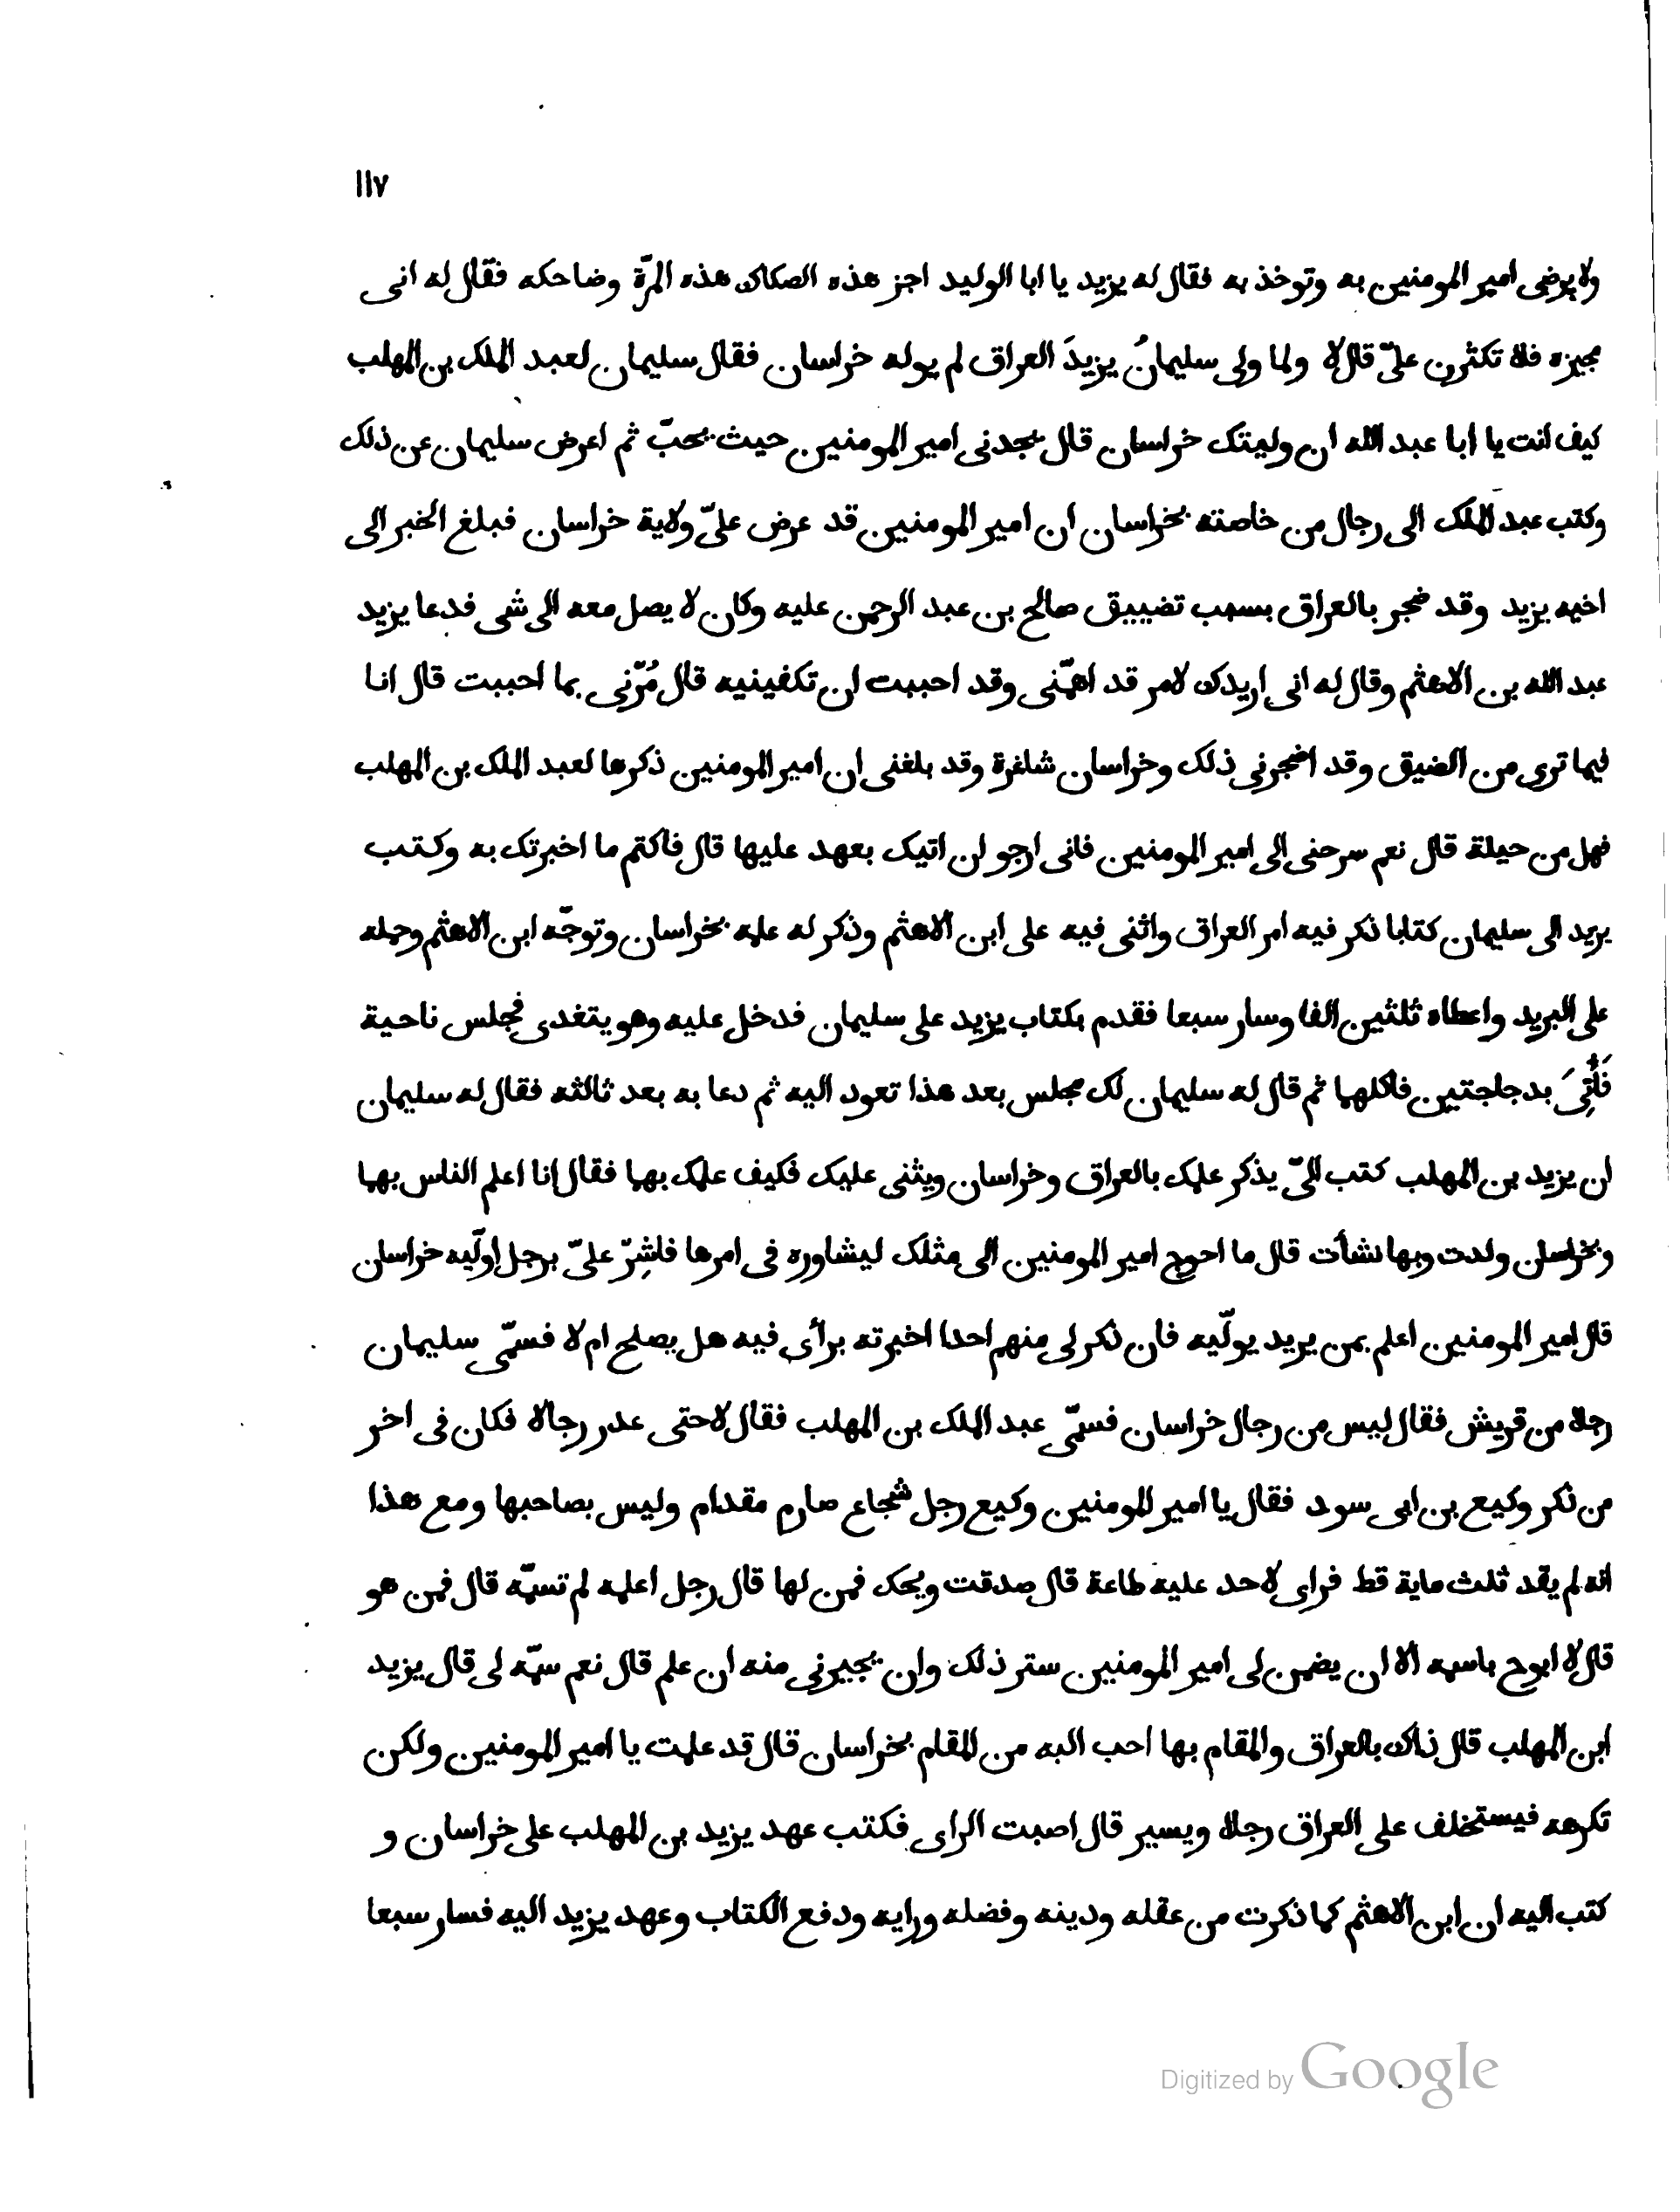 ١١٧
ولا يرضى امير المومنين به وتوخذ به فقال له يزيد يا ابا الوليد اجز هذه الصكاك هذه المرّة وضاحكه فقال له انى
مجيزه فلا تكثرن علىّ قال لا ولما ولى سليمانُ يزيدَ العراق لم يوله خراسان فقال سليمان لعبد الملك بن المهلب
كيف انت يا ابا عبد الله ان وليتك خراسان قال يجدنى امير المومنين حيث يحبّ ثم اعرض سليمان عن ذلك
وكتب عبد الملك الى رجال من خاصته بخراسان ان امير المومنين قد عرض علىّ ولاية خراسان فبلغ الخبر الى
اخيه يزيد وقد ضجر بالعراق بسبب تضييق صالح بن عبد الرحمن عليه وكان لا يصل معه الى شى فدعا يزيد
عبد الله بن الاهثم وقال له انى اريدك لامر قد اهمّنى وقد احببت ان تكفينيه قال مُرّنى بما احببت قال انا
فيما ترى من الضيق وقد اضجرنى ذلك وخراسان شاغرة وقد بلغنى ان امير المومنين ذكرها لعبد الملك بن المهلب
فهل من حيلة قال نعم سرحنى الى امير المومنين فانى ارجو ان اتيك بعهد عليها قال فاكتم ما اخبرتك به وكتب
يريد الى سليمان كتابا ذكر فيه امر العراق واثنى فيه على ابن الاهثم وذكر له علمه بخراسان وتوجّه ابن الاهثم وحمله
على البريد واعطاه ثلثين الفا وسار سبعا فقدم بكتاب يزيد على سليمان فدخل عليه وهو يتغدى فجلس ناحية
فَأُتِىَ بدجاجتين فاكلهما ثم قال له سليمان لك مجلس بعد هذا تعود اليه ثم دعا به بعد ثالثه فقال له سليمان
ان يزيد بن المهلب كتب الىّ يذكر علمك بالعراق وخراسان ويثنى عليك فكيف علمك بهما فقال انا اعلم الناس بهما
وبخراسان ولدت وبها نشأت قال ما احوج امير المومنين الى مثلك ليشاوره فى امرها فاشِرّ علىّ برجل اولّيه خراسان
قال امير المومنين اعلم بمن يريد يولّيه فان ذكر لى منهم احدا اخبرته برأى فيه هل يصلح ام لا فسمّى سليمان
رجلا من قريش فقال ليس من رجال خراسان فسمّى عبد الملك بن المهلب فقال لا حتى عدر رجالا فكان فى اخر
من ذكر وكيع بن ابى سود فقال يا امير المومنين وكيع رجل شجاع صارم مقدام وليس بصاحبها ومع هذا
انه لم يقد ثلث ماية قط فراى لاحد عليه طاعة قال صدقت ويحك فمن لها قال رجل اعلمه لم تسمّه قال فمن هو
قال لا ابوح باسمه الا ان يضمن لى امير المومنين ستر ذلك وان يجيرنى منه ان علم قال نعم سمّه لى قال يزيد
ابن المهلب قال ذاك بالعراق والمقام بها احب اليه من المقام بخراسان قال قد علمت يا امير المومنين ولكن
تكرهه فيستخلف على العراق رجلا ويسير قال اصبت الراى فكتب عهد يزيد بن المهلب على خراسان و
كتب اليه ان ابن الاهثم كما ذكرت من عقله ودينه وفضله ورايه ودفع الكتاب وعهد يزيد اليه فسار سبعا
Digitized by Google